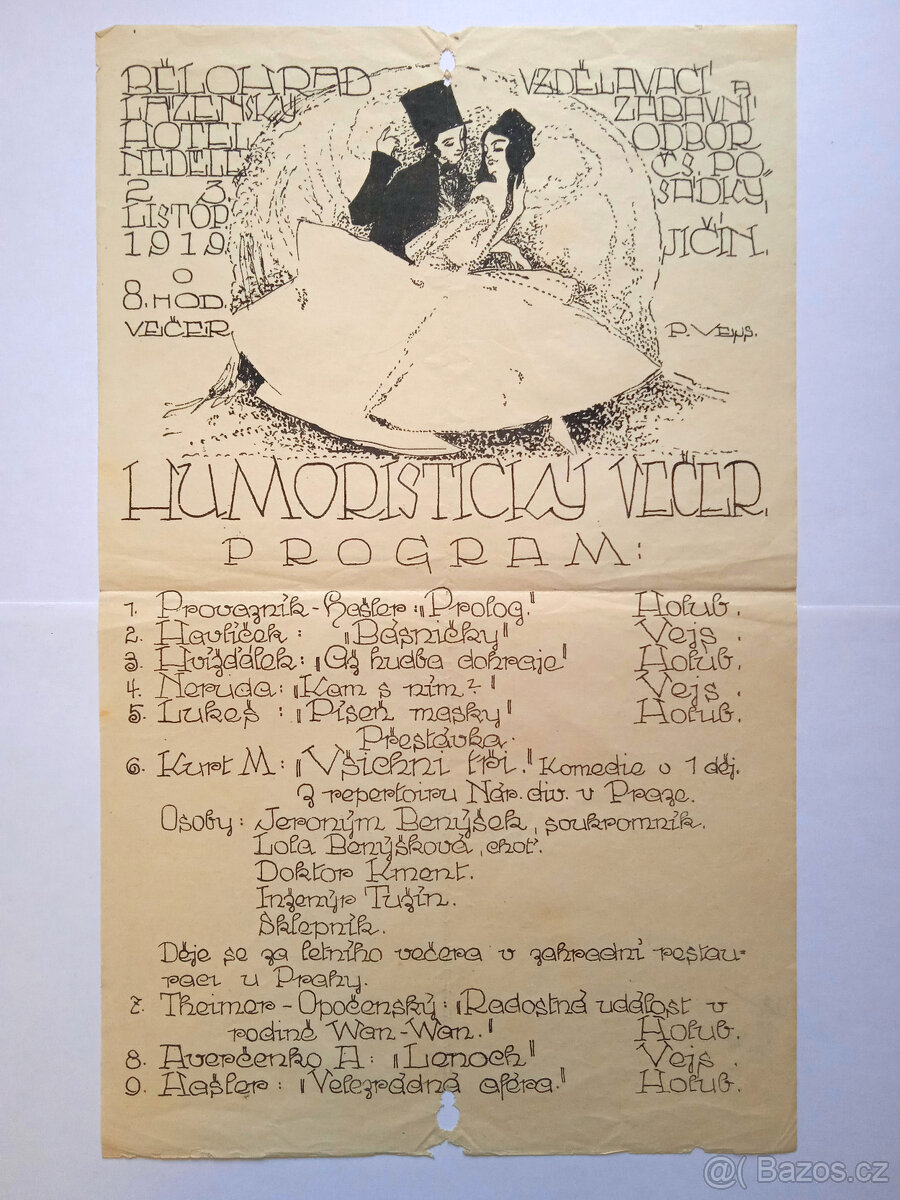 BĚLOHRAD
LÁZEŇSKÝ
HOTEL
NEDĚLE
23.
LISTOP.
1919
O
8. HOD.
VEČER
VZDĚLAVACÍ A
ZÁBAVNÍ
ODBOR
ČS. PO
SÁDKY,
JIČÍN.
P. Vejs.
HUMORISTICKÝ VEČER.
PROGRAM:
1. Provazník-Hašler: „Prolog." Holub.
2. Havlíček: „Básničky" Vejs.
3. Hvížďálek: „Až hudba dohraje" Holub.
4. Neruda: „Kam s ním?" Vejs.
5. Lukeš: „Píseň masky" Holub.
Přestávka.
6. Kurt M: „Všichni tři." Komedie o 1 děj.
Z repertoiru Nár. div. v Praze.
Osoby: Jeroným Benýšek, soukromník.
Lola Benýšková, choť.
Doktor Kment.
Inženýr Tužín.
Sklepník.
Děje se za letního večera v zahradní restau-
raci u Prahy.
7. Theimer-Opočenský: „Radostná událost v
rodině Wan-Wan." Holub.
8. Averčenko A: „Lenoch" Vejs.
9. Hašler: „Velezrádná aféra." Holub.
@( Bazos.cz